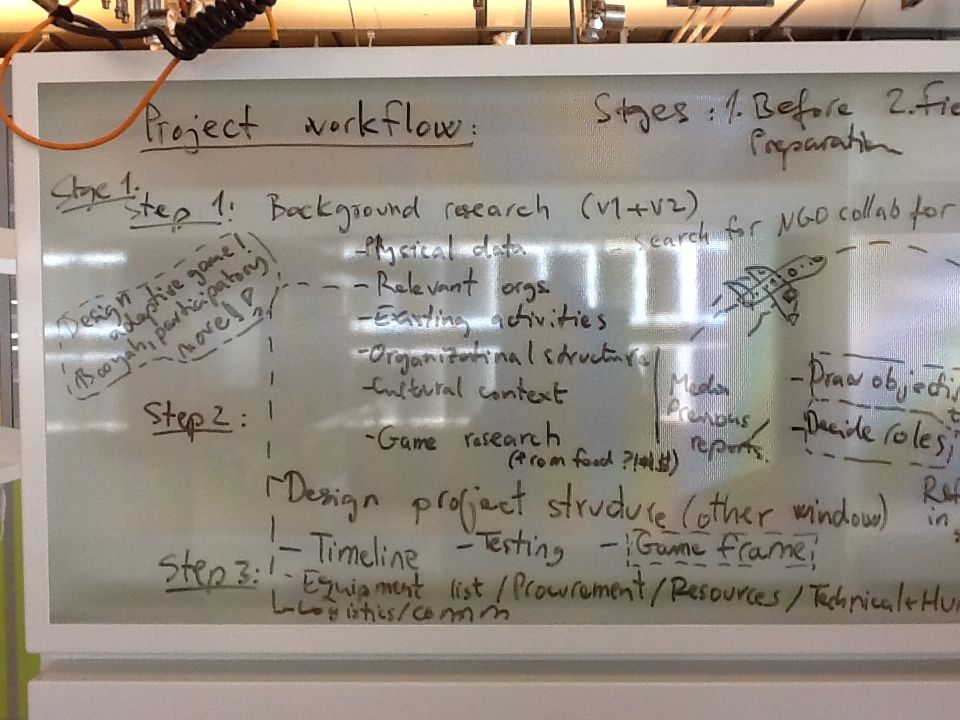 Project workflow:
Stages: 1. Before 2. Fie
Preparation
Stage 1.
Step 1: Background research (V1+V2)
- search for NGO collab for
Design
adaptive game!
Booyah, participatory
more!!
- Physical data
- Relevant orgs
- Existing activities
- Organizational structure
- Cultural context
- Game research
(from food ?!
Media
Previous
reports.
- Draw objecti
- Decide roles
Step 2:
Design project strudure (other window)
Ref
in
- Timeline - Testing - Game frame
Step 3:
- Equipment list / Procurement / Resources / Technical + Hu
- Logistics/comm